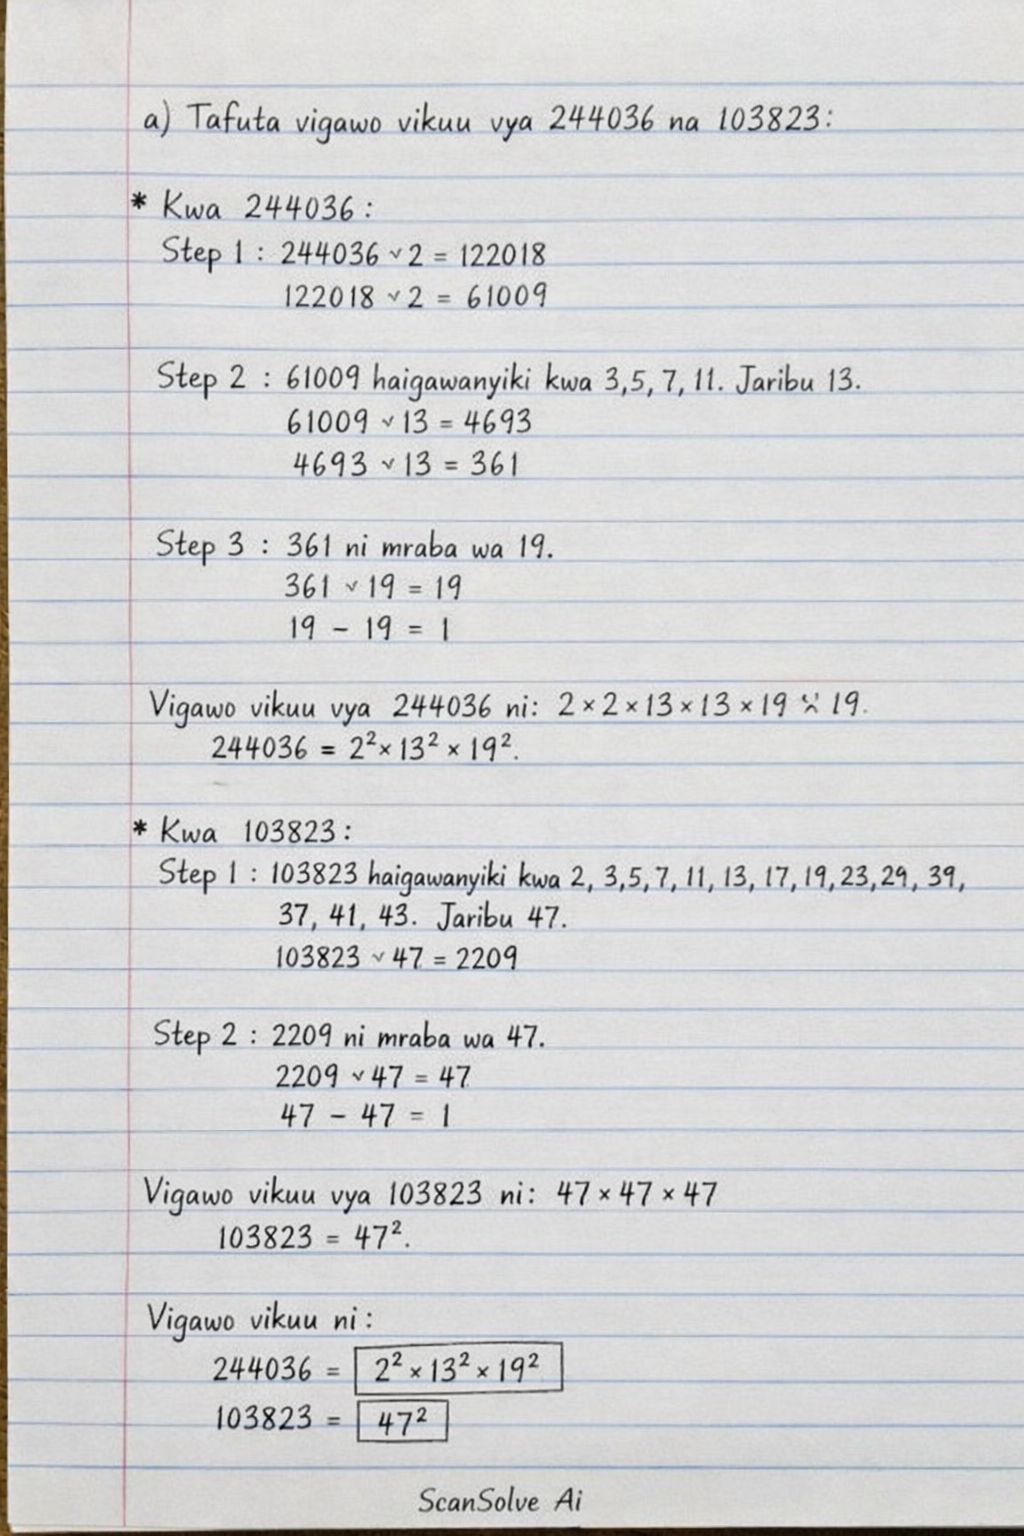 a) Tafuta vigawo vikuu vya 244036 na 103823:
* Kwa 244036:
Step 1 : 244036 ˅ 2 = 122018
122018 ˅ 2 = 61009
Step 2 : 61009 haigawanyiki kwa 3,5,7,11. Jaribu 13.
61009 ˅ 13 = 4693
4693 ˅ 13 = 361
Step 3 : 361 ni mraba wa 19.
361 ˅ 19 = 19
19 - 19 = 1
Vigawo vikuu vya 244036 ni: 2 × 2 × 13 × 13 × 19 × 19.
244036 = 2² × 13² × 19².
* Kwa 103823:
Step 1 : 103823 haigawanyiki kwa 2, 3,5,7, 11, 13, 17, 19, 23, 29, 39,
37, 41, 43. Jaribu 47.
103823 ˅ 47 = 2209
Step 2 : 2209 ni mraba wa 47.
2209 ˅ 47 = 47
47 - 47 = 1
Vigawo vikuu vya 103823 ni: 47 × 47 × 47
103823 = 47².
Vigawo vikuu ni:
244036 = 2² × 13² × 19²
103823 = 47²
ScanSolve Ai